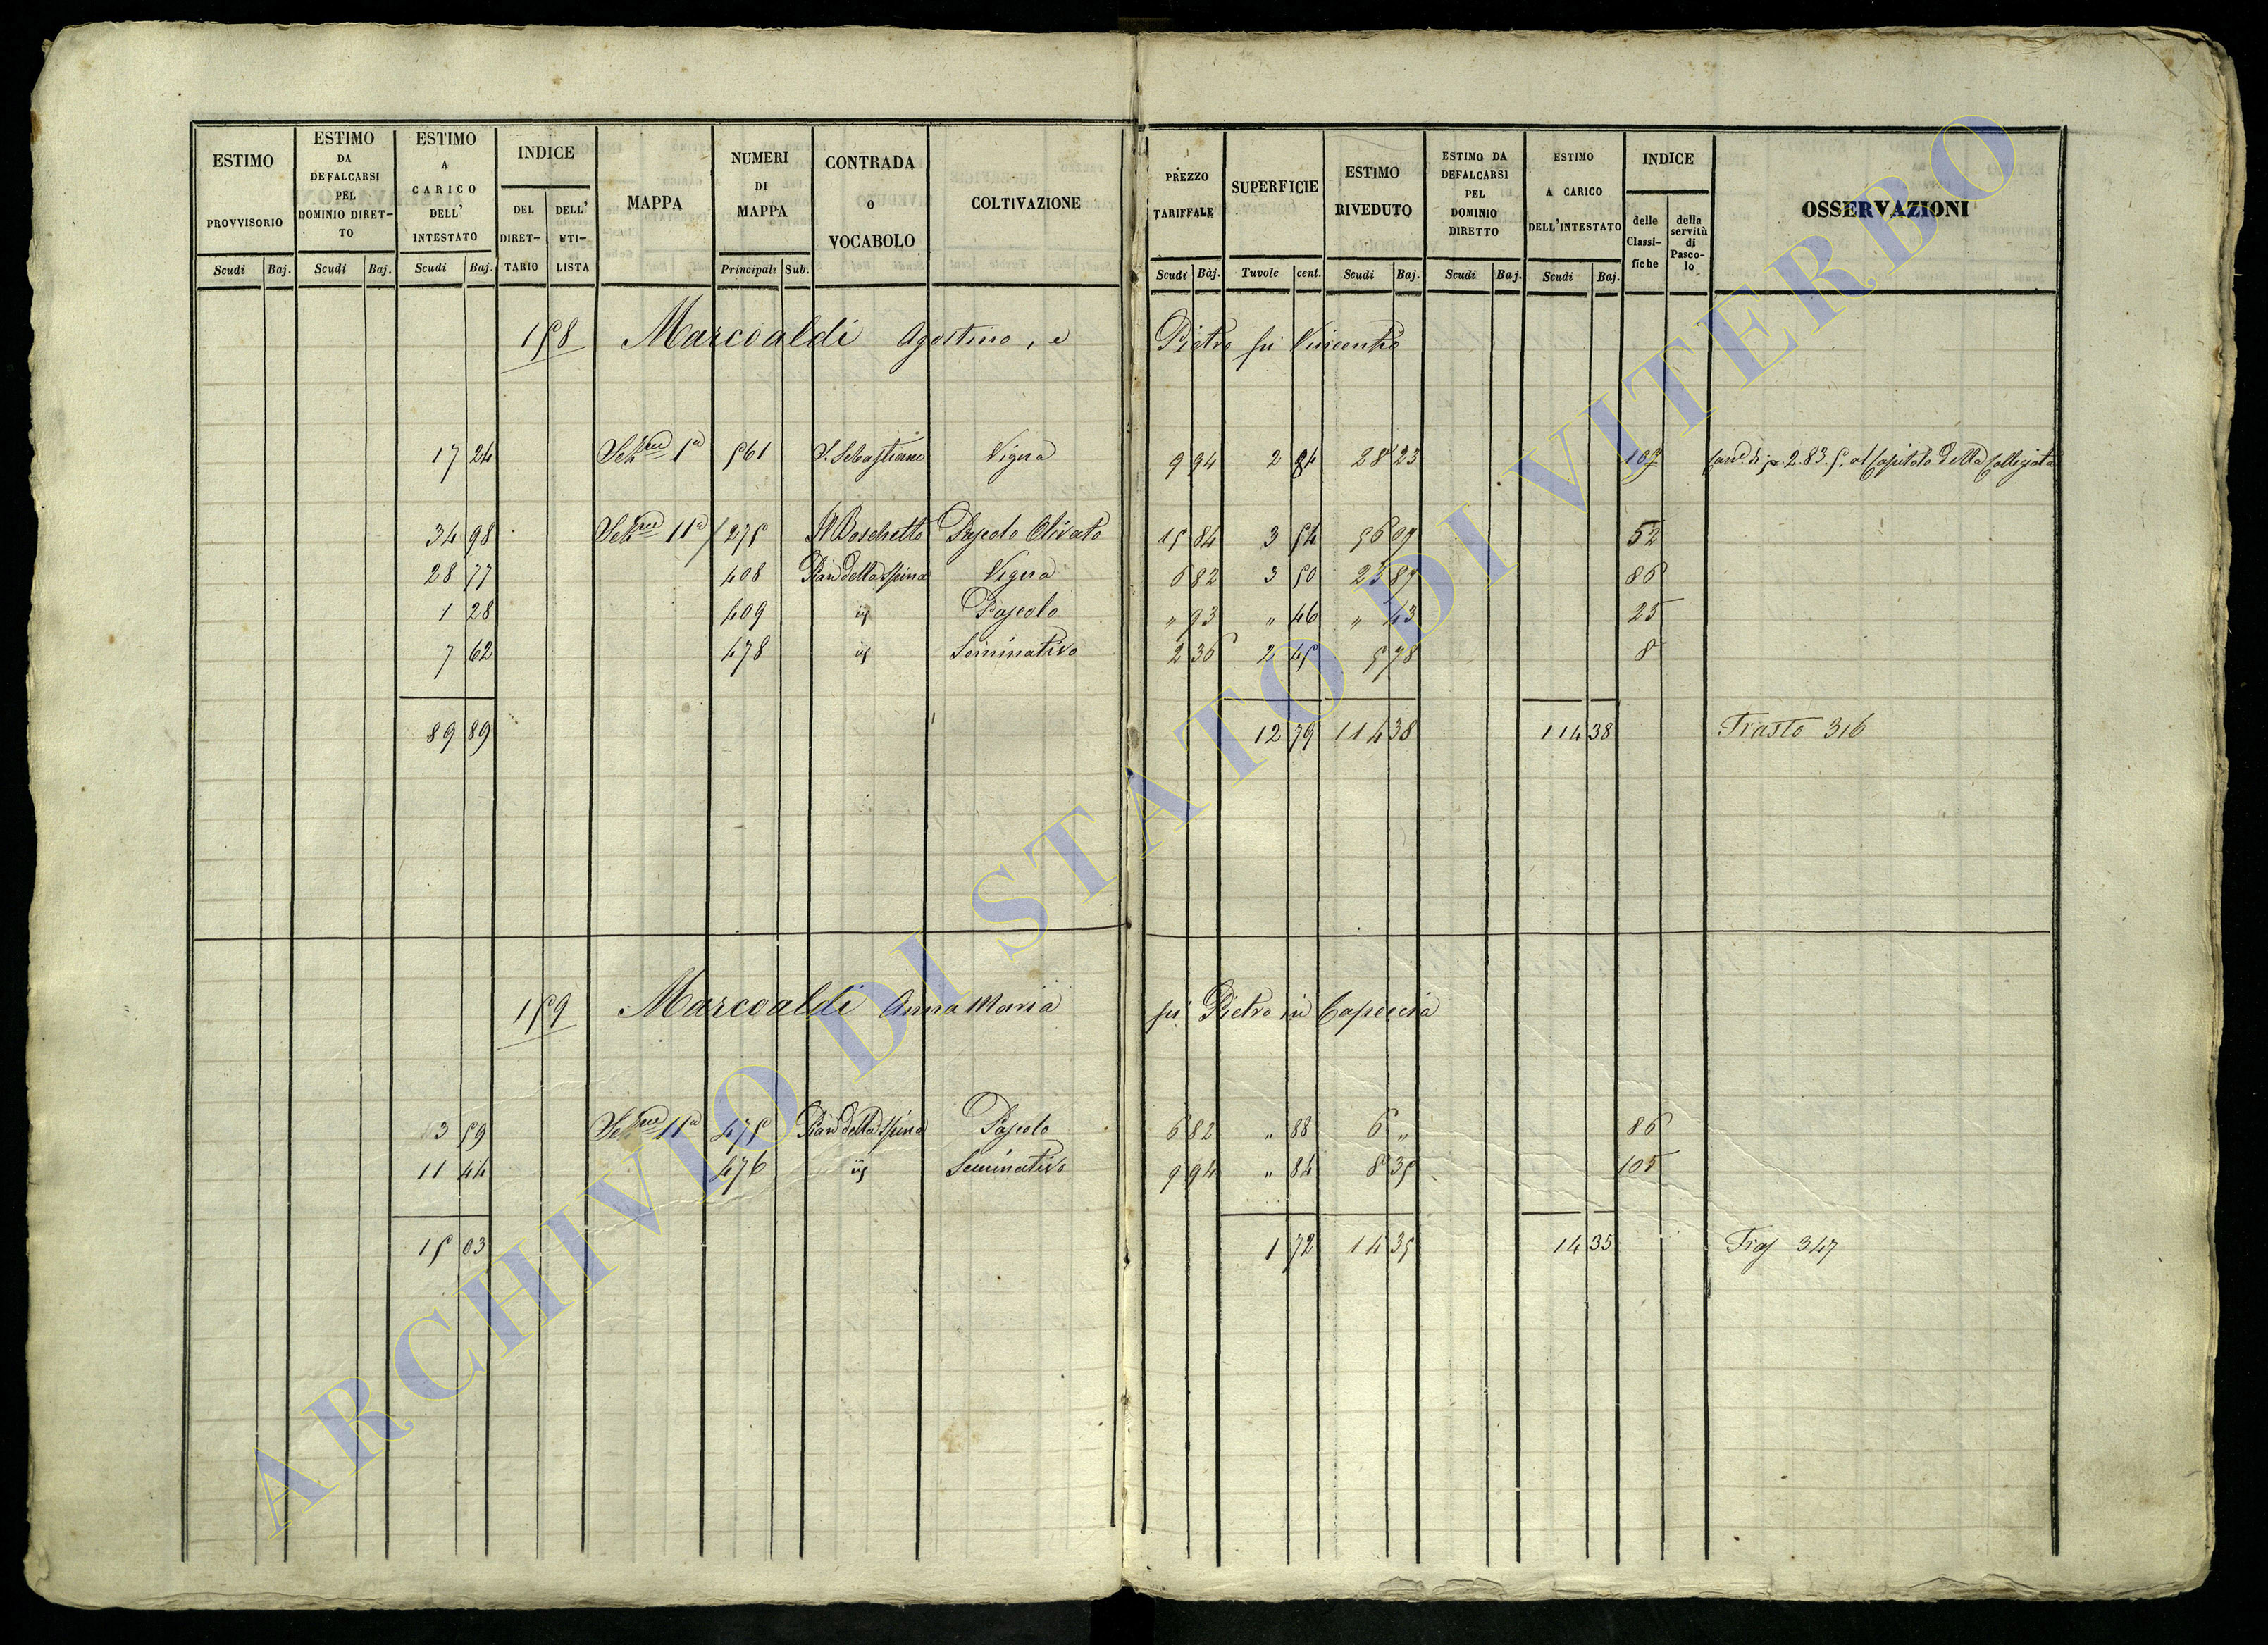 ESTIMO PROVVISORIO Scudi Baj.
ESTIMO DA DEFALCARSI PEL DOMINIO DIRET- TO Scudi Baj.
ESTIMO A CARICO DELL' INTESTATO Scudi Baj.
INDICE DEL DIRET- TARIO DELL' UTI- LISTA
MAPPA
NUMERI DI MAPPA Principali Sub.
CONTRADA O VOCABOLO
COLTIVAZIONE
PREZZO TARIFFALE Scudi Baj.
SUPERFICIE Tuvole cent.
ESTIMO RIVEDUTO Scudi Baj.
ESTIMO DA DEFALCARSI PEL DOMINIO DIRETTO Scudi Baj.
ESTIMO A CARICO DELL'INTESTATO Scudi Baj.
INDICE delle Classi- fiche della servitù di Pasco- lo
OSSERVAZIONI
158 Marcoaldi Agostino, e Pietro fu Vincenzo
17 24 1a 561 S. Sebastiano Vigna 9 94 2 84 28 23 107 di 2.83.5. al Capitolo della Collegiata
34 98 11a 275 Il Boschetto Pascolo Olivato 15 84 3 54 56 07 52
28 77 408 Pian della Spina Vigna 6 82 3 50 23 87 86
1 28 409 id Pascolo " 93 " 46 " 43 25
7 62 478 id Seminativo 2 36 2 45 5 78 8
89 89 12 79 114 38 114 38 Trasto 316
159 Marcoaldi Anna Maria fu Pietro in Capoccia
3 59 11a 475 Pian della Spina Pascolo 6 82 " 88 6 " 86
11 44 476 id Seminativo 9 94 " 84 8 35 105
15 03 1 72 14 35 14 35 Tras 347
ARCHIVIO DI STATO DI VITERBO